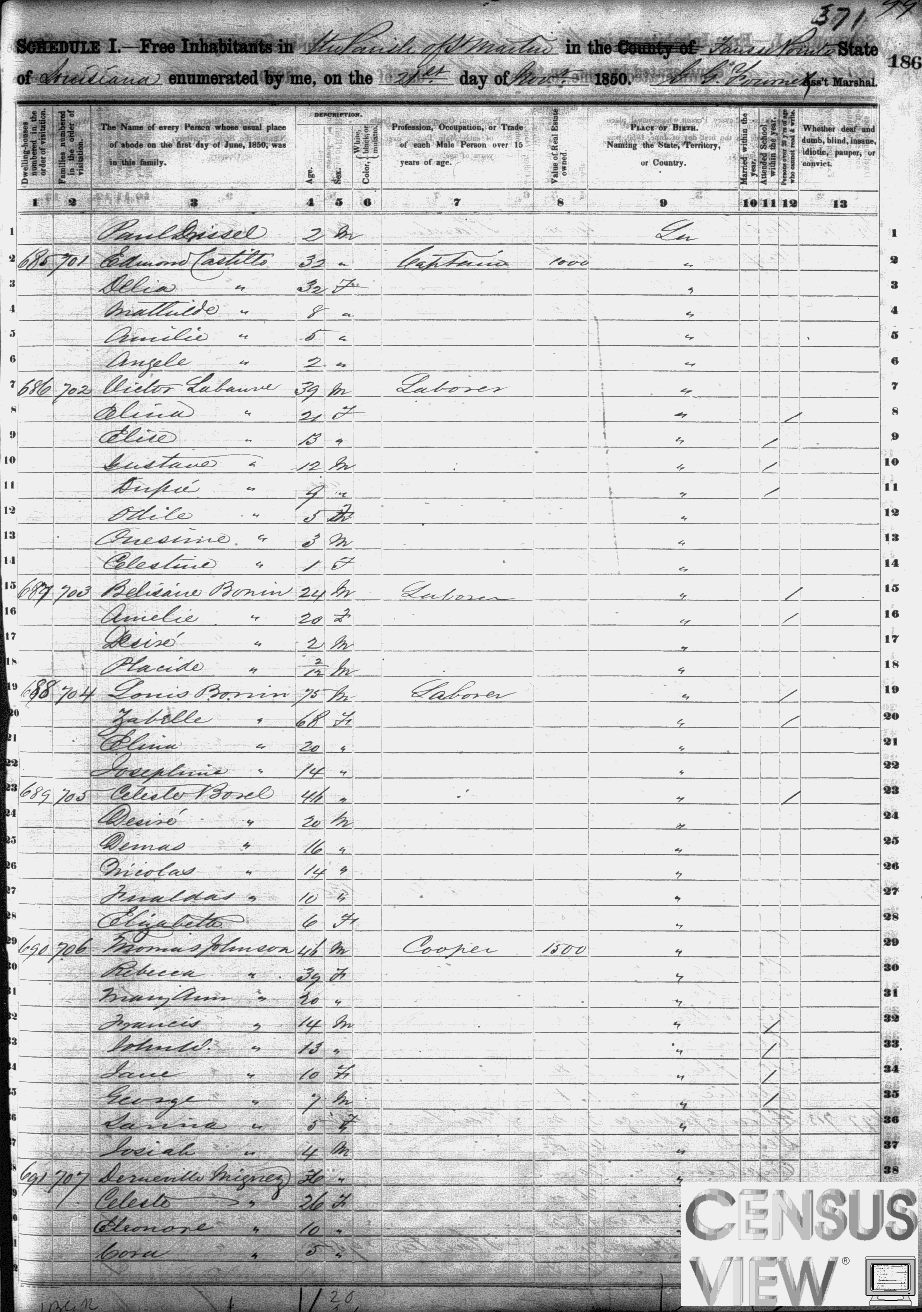 371 99
SCHEDULE I.—Free Inhabitants in the Parish of St Martin in the County of Fausse Pointe State
of Louisiana enumerated by me, on the 21st day of Novr 1850. Ass't Marshal.
186
Dwelling-houses numbered in the order of visitation.
Families numbered in the order of visitation.
The Name of every Person whose usual place of abode on the first day of June, 1850, was in this family.
DESCRIPTION.
Age.
Sex.
Color, { White, black, or mulatto.
Profession, Occupation, or Trade of each Male Person over 15 years of age.
Value of Real Estate owned.
PLACE OF BIRTH. Naming the State, Territory, or Country.
Married within the year.
Attended School within the year.
Persons over 20 y'rs of age who cannot read & write.
Whether deaf and dumb, blind, insane, idiotic, pauper, or convict.
1 2 3 4 5 6 7 8 9 10 11 12 13
1 Paul 2 M La 1
2 685 701 Edmond Castillo 32 " Captain 1000 " 2
3 Delia " 32 F " 3
4 Mathilde " 8 " " 4
5 Amilie " 5 " " 5
6 Angele " 2 " " 6
7 686 702 Victor Labauve 39 M Laborer " 7
8 Elina " 21 F " / 8
9 Elise " 13 " " / 9
10 Gustave " 12 M " / 10
11 " 9 " " / 11
12 Odile " 5 F " 12
13 Onesime " 3 M " 13
14 Celestine " 1 F " 14
15 687 703 Belisaire Bonin 24 M Laborer " / 15
16 Amelie " 20 F " / 16
17 Desiré " 2 M " 17
18 Placide " 2/12 M " 18
19 688 704 Louis Bonin 75 M Laborer " / 19
20 Zabelle " 68 F " / 20
21 Elina " 20 " " 21
22 Josephine " 14 " " 22
23 689 705 Celeste Borel 46 " " / 23
24 Desiré " 20 M " 24
25 Demas " 16 " " 25
26 Nicolas " 14 " " 26
27 " 10 " " 27
28 Elizabeth 6 F " 28
29 690 706 Thomas Johnson 46 M Cooper 1500 " 29
30 Rebecca " 39 F " 30
31 Mary Ann " 20 " " 31
32 Francis " 14 M " / 32
33 John W. " 13 " " / 33
34 Jane " 10 F " / 34
35 George " 7 M " / 35
36 " 5 F " 36
37 Josiah " 4 M " 37
38 691 707 Derneville Miguez " " 38
Celeste " 26 F "
Eleonore " 10 "
Cora " 5 "
CENSUS
VIEW ®